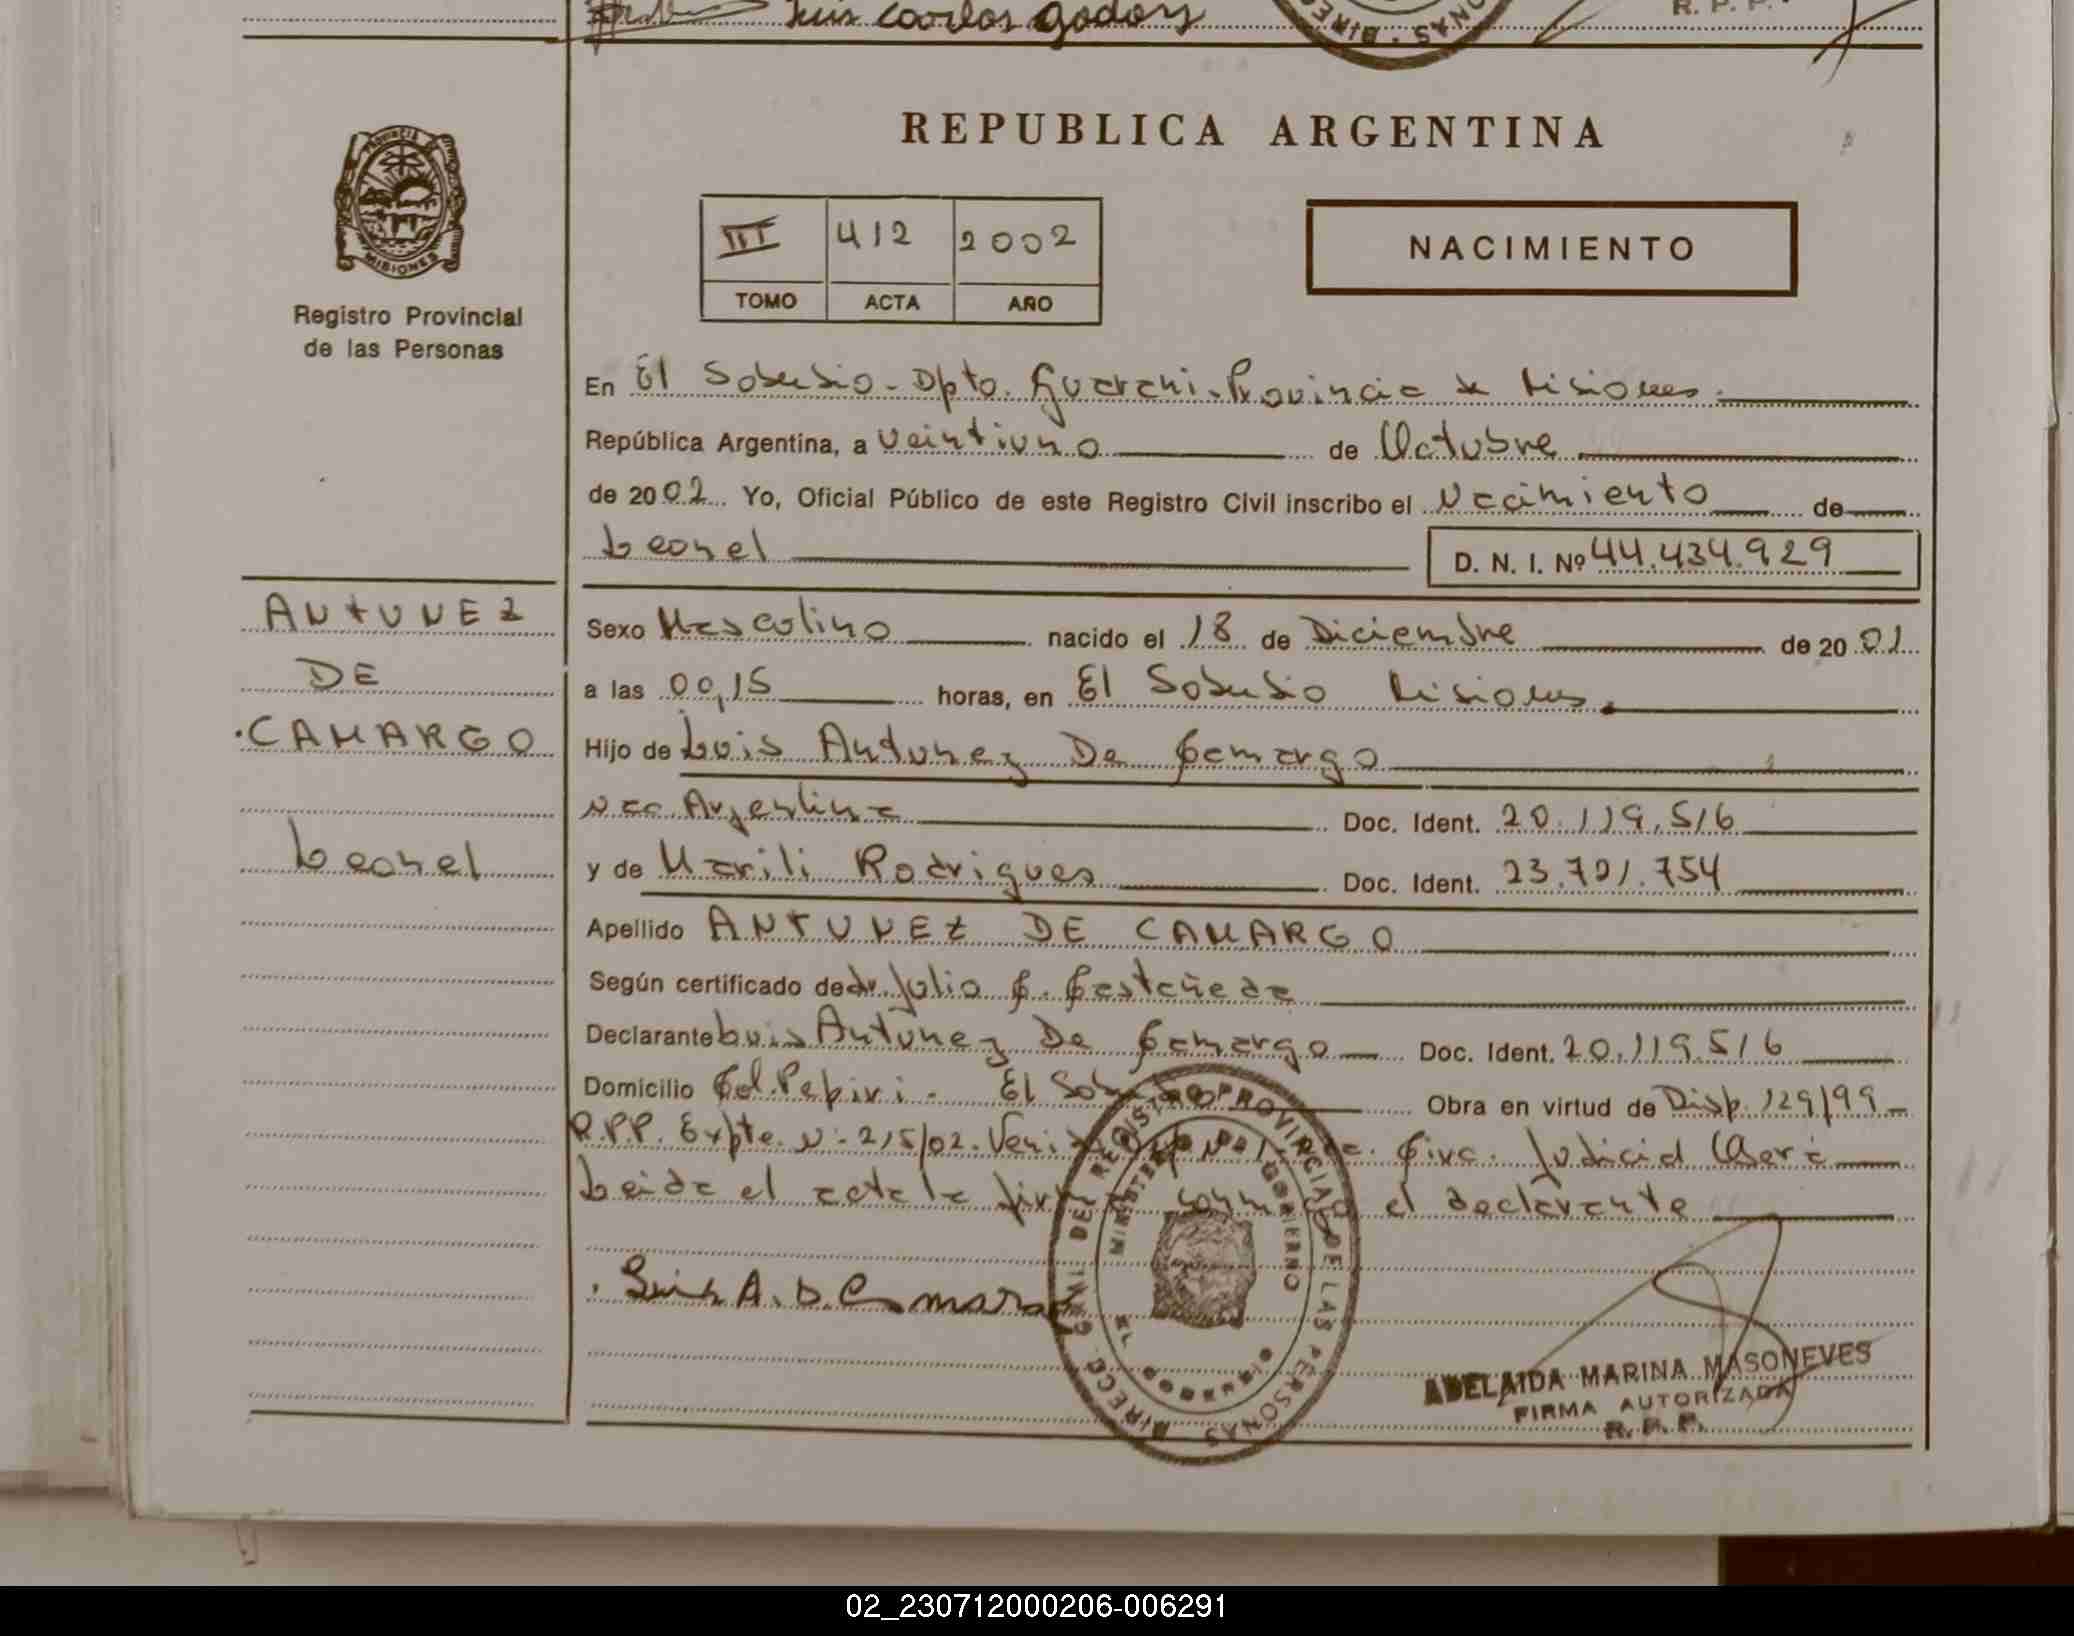 Luis Carlos Godoy
R. P. P.
REPUBLICA ARGENTINA
PROVINCIA
MISIONES
Registro Provincial
de las Personas
III 412 2002
TOMO ACTA AÑO
NACIMIENTO
En El Soberbio - Dpto. Guarani - Provincia de Misiones.
República Argentina, a veintiuno de Octubre
de 2002 Yo, Oficial Público de este Registro Civil inscribo el Nacimiento de
Leonel D. N. I. Nº 44.434.929
ANTUNEZ
DE
CAMARGO
Leonel
Sexo Masculino nacido el 18 de Diciembre de 2001
a las 00,15 horas, en El Soberbio Misiones.
Hijo de Luis Antunez De Camargo
Nac Argentina Doc. Ident. 20.119.516
y de Marili Rodrigues Doc. Ident. 23.721.754
Apellido ANTUNEZ DE CAMARGO
Según certificado de dr. Julio C. Castañeda
Declarante Luis Antunez De Camargo Doc. Ident. 20.119.516
Domicilio Col. Pepiri - El Sob Obra en virtud de Disp. 129/99
R.P.P. Expte. N: 215/02. Circ. Judicial Oberá
Leida el acta la el declarante
Luis A. D. Camargo
DIRECC. GRAL. DEL REGISTRO PROVINCIAL DE LAS PERSONAS
MINISTERIO DE GOBIERNO
EL SOBERBIO
ADELAIDA MARINA MASONEVES
FIRMA AUTORIZADA
R. P. P.
02_230712000206-006291